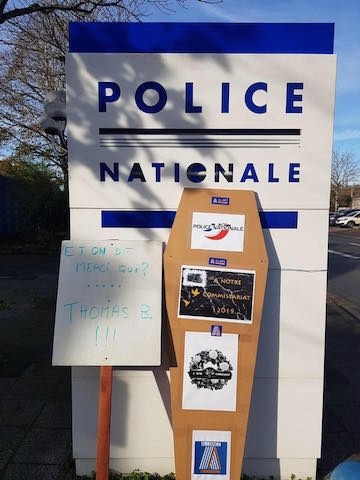 POLICE
NATIONALE
POLICE NATIONALE
A NOTRE
COMMISSARIAT
2019
ET ON DIT
MERCI QUI?
.....
THOMAS B.
!!!